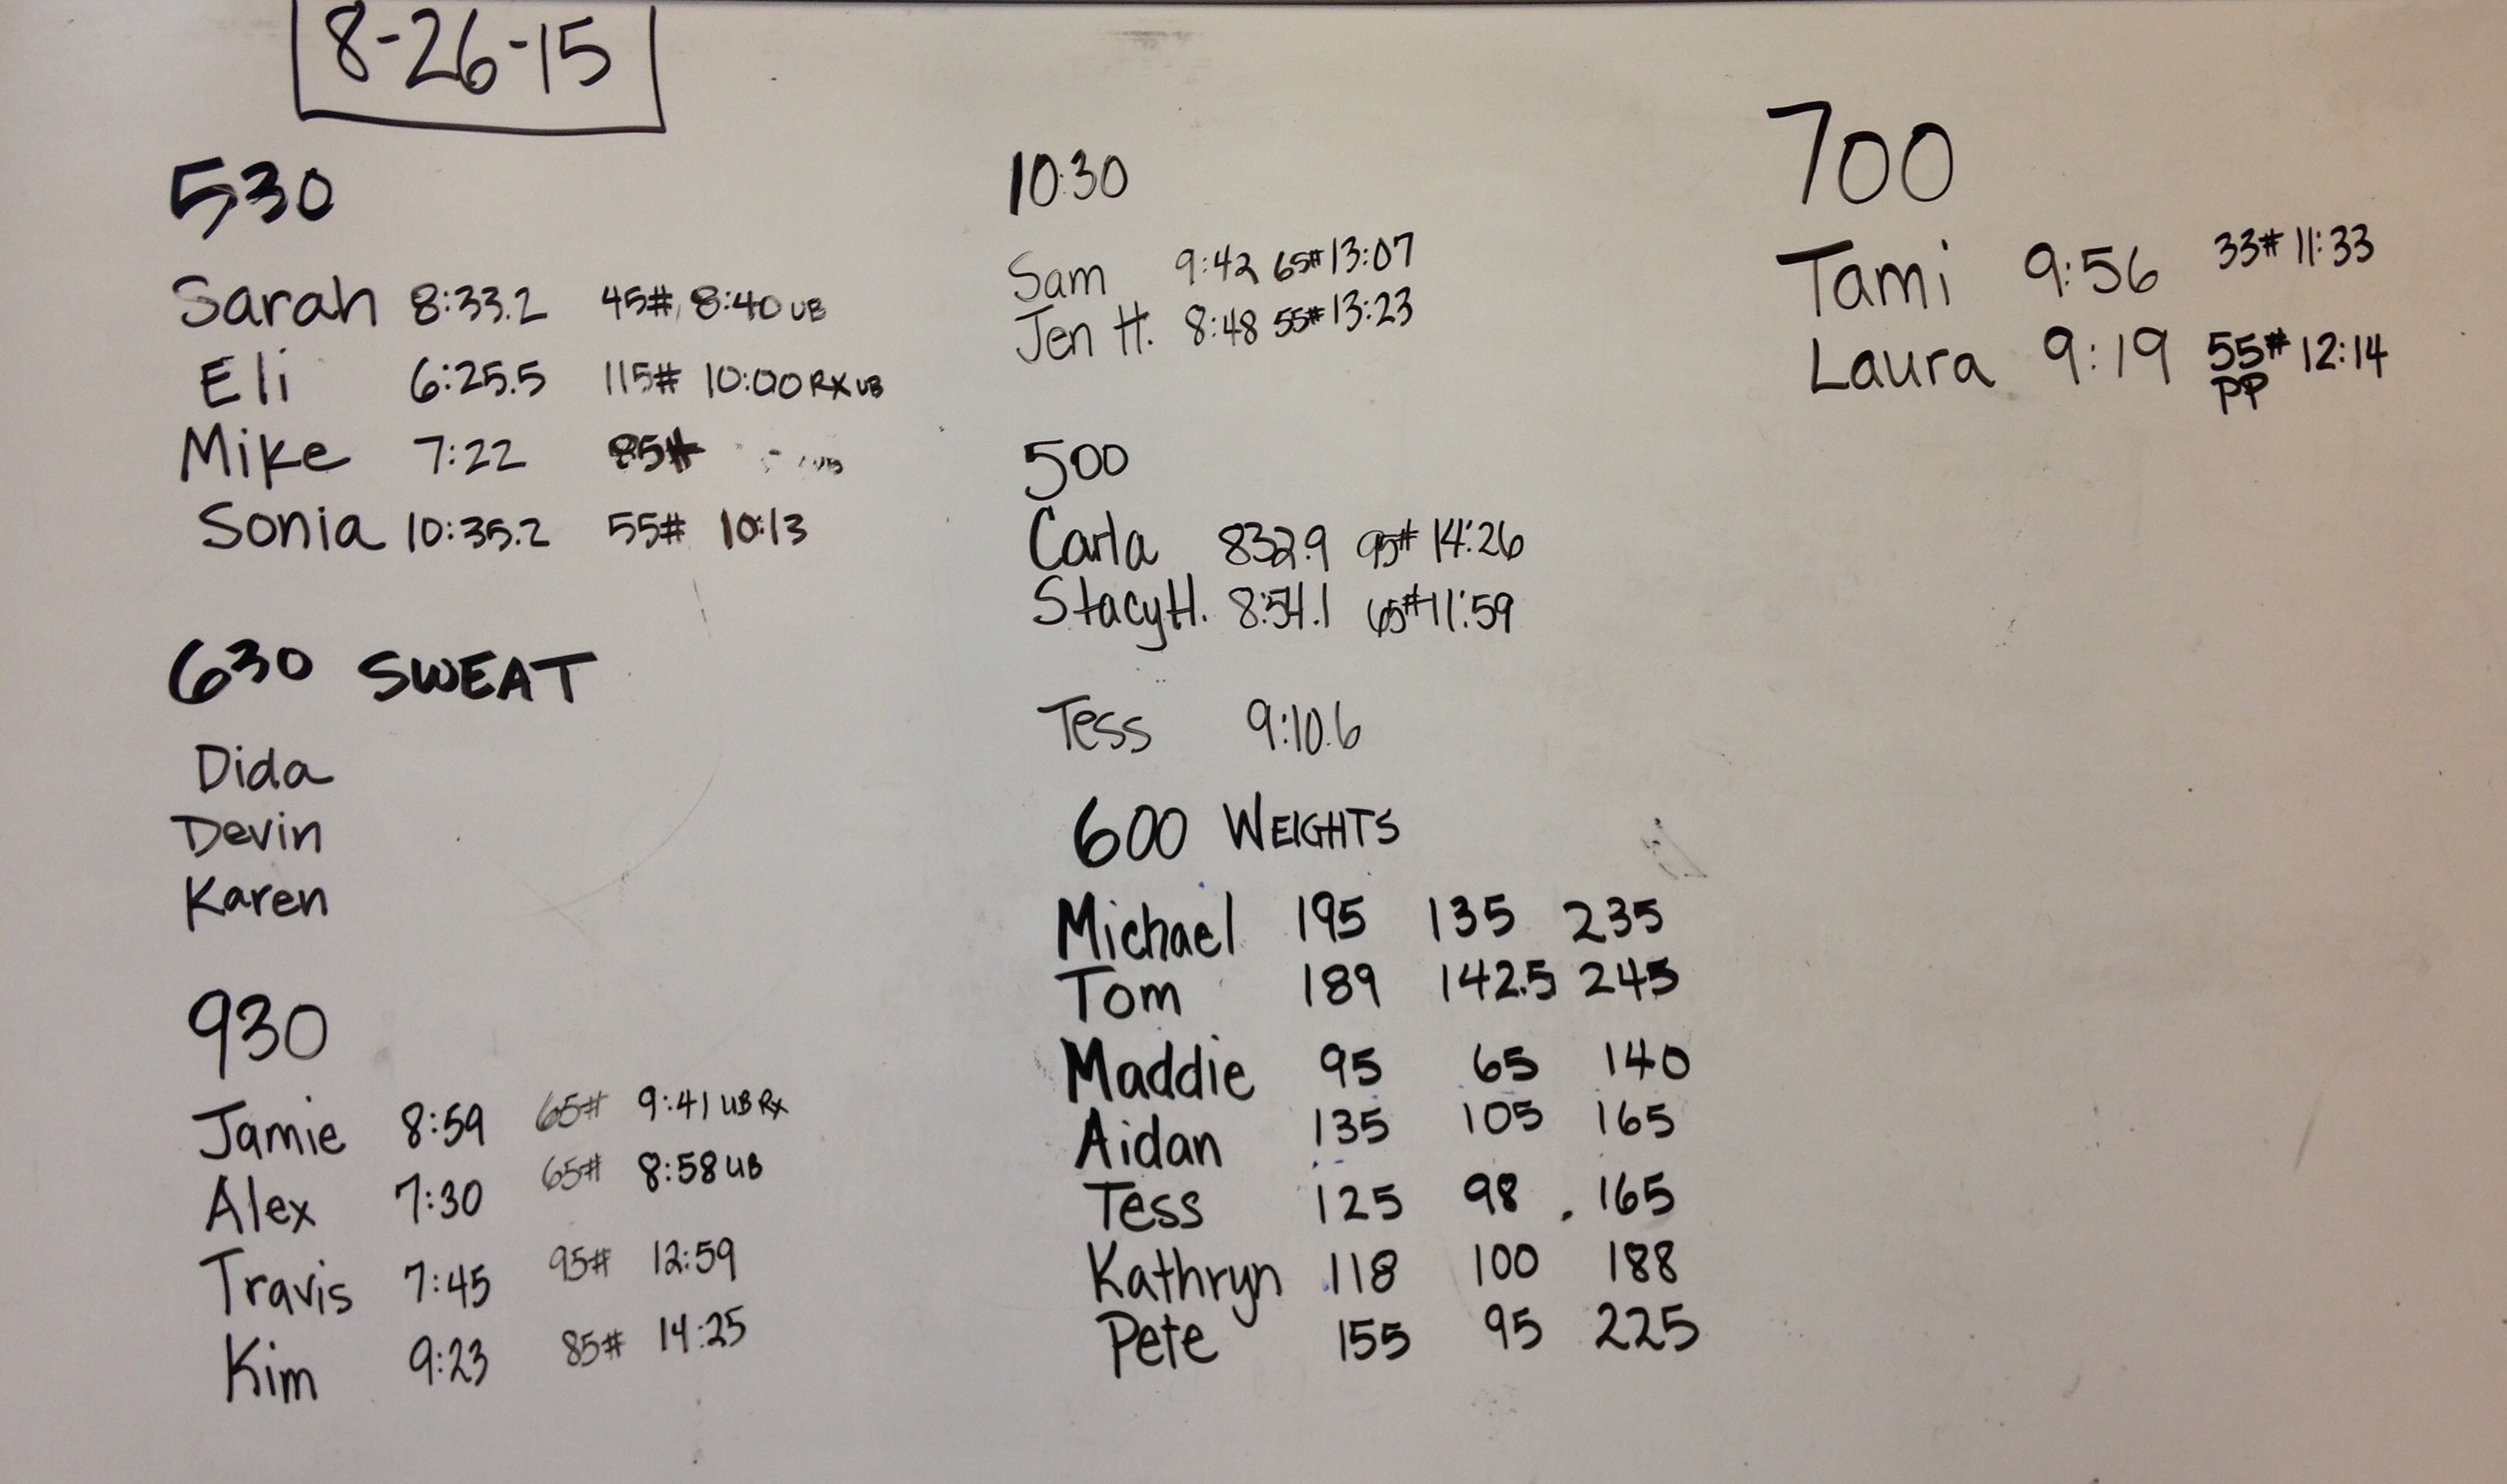 8-26-15
530
Sarah 8:33.2 45# 8:40 UB
Eli 6:25.5 115# 10:00 RX UB
Mike 7:22 85#
Sonia 10:35.2 55# 10:13
630 SWEAT
Dida
Devin
Karen
930
Jamie 8:59 65# 9:41 UB Rx
Alex 7:30 65# 8:58 UB
Travis 7:45 95# 12:59
Kim 9:23 85# 14:25
10:30
Sam 9:42 65# 13:07
Jen H. 8:48 55# 13:23
500
Carla 832.9 95# 14:26
Stacy H. 8:54.1 65# 11:59
Tess 9:10.6
600 WEIGHTS
Michael 195 135 235
Tom 189 142.5 245
Maddie 95 65 140
Aidan 135 105 165
Tess 125 98 165
Kathryn 118 100 188
Pete 155 95 225
700
Tami 9:56 33# 11:33
Laura 9:19 55# 12:14
PP